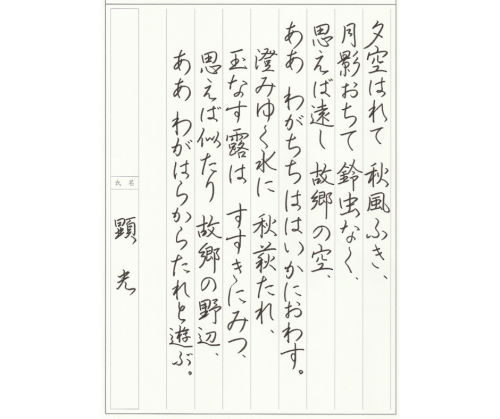 夕空はれて 秋風ふき、
月影おちて 鈴虫なく、
思えば遠し 故郷の空、
ああ わがちちははいかにおわす。
澄みゆく水に 秋萩たれ、
玉なす露は すすきにみつ、
思えば似たり 故郷の野辺、
ああ わがはらからたれと遊ぶ。
氏名
顕光